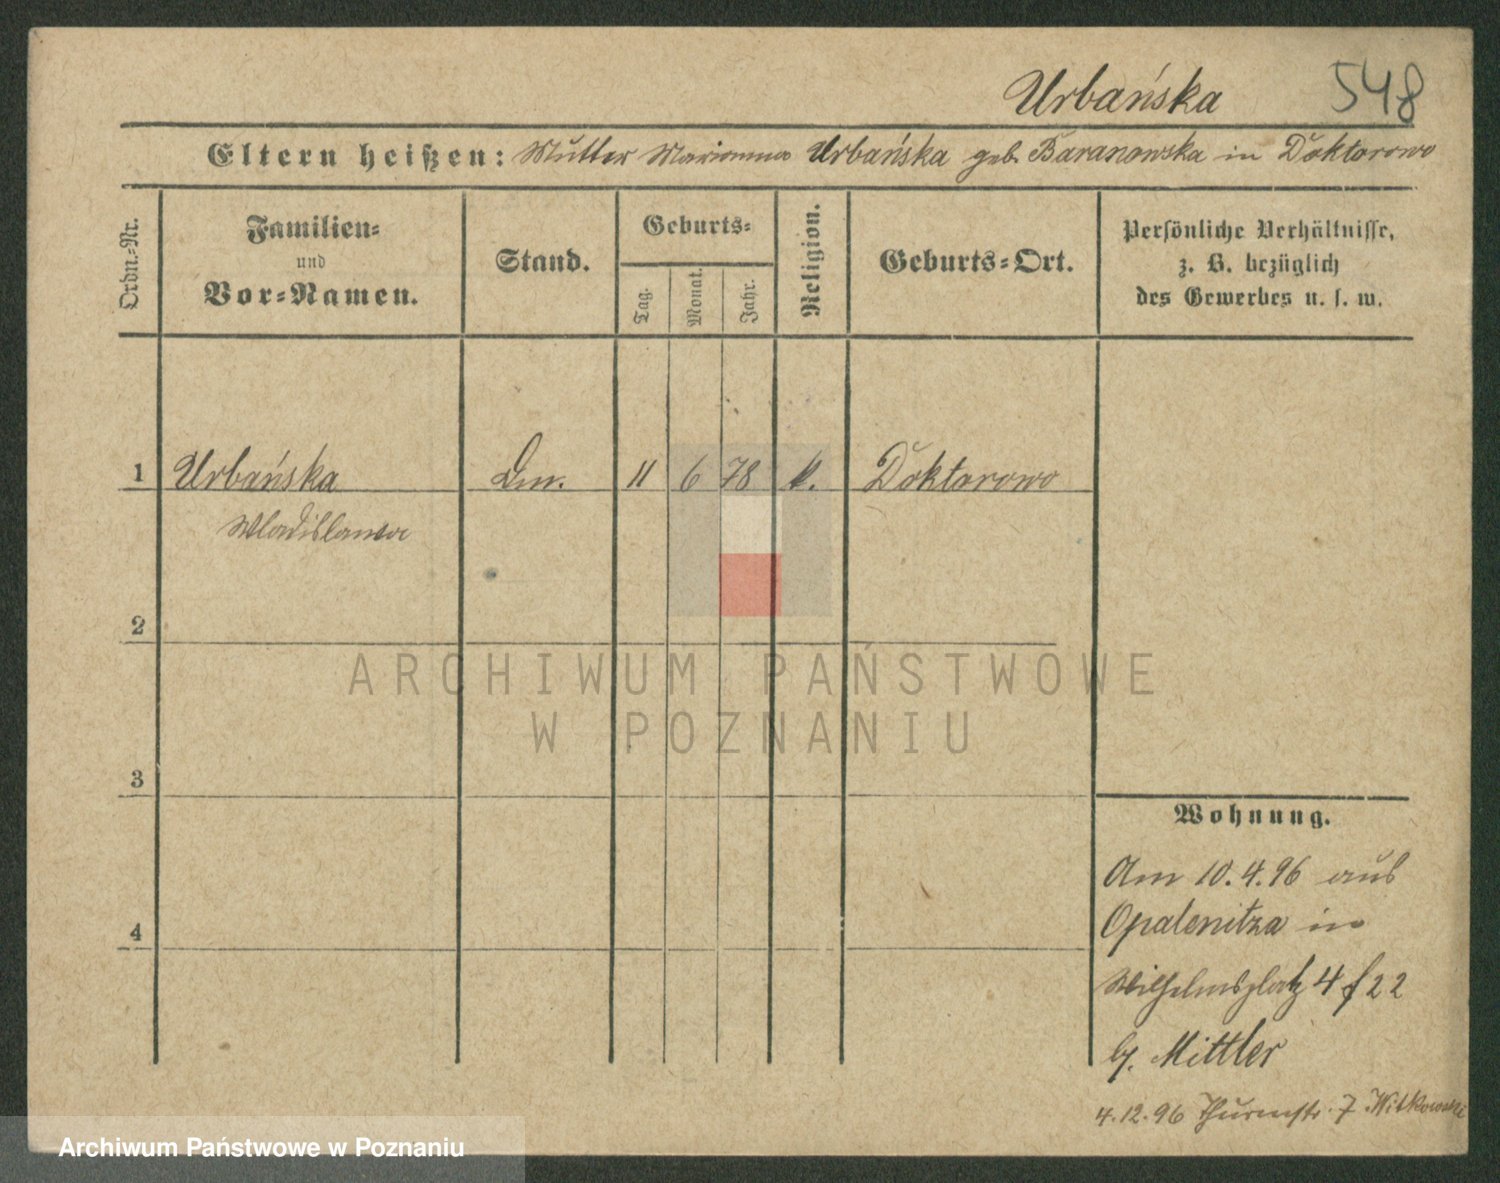 Urbańska 548
Eltern heißen: Mutter Marianna Urbańska geb. Baranowska in Doktorowo
Ordn.-Nr.
Familien-
und
Vor-Namen.
Stand.
Geburts-
Tag.
Monat.
Jahr.
Religion.
Geburts-Ort.
Persönliche Verhältnisse,
z. B. bezüglich
des Gewerbes u. s. w.
1 Urbańska 11 6 78 k. Doktorowo
Wladislawa
2
3
4
Wohnung.
Am 10.4.96 aus
Opalenitza in
Wilhelmsplatz 4 22
b. Mittler
4.12.96 Thurmstr. 7 Witkowski
ARCHIWUM PAŃSTWOWE
W POZNANIU
Archiwum Państwowe w Poznaniu